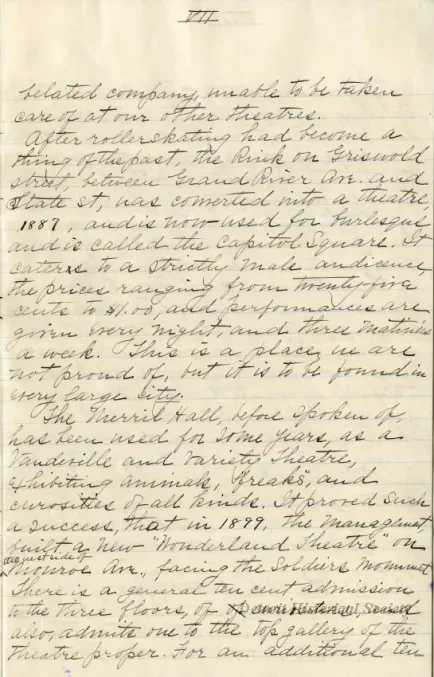 VII
belated company, unable to be taken
care of at our other theatres.
After roller skating had become a
thing of the past, the Rink on Griswold
street, between Grand River Ave. and
State st, was converted into a theatre,
1887, and is now used for burlesque
and is called the Capitol Square. It
caters to a strictly male audience,
the prices ranging from twenty five
cents to $1.00, and performances are
given every night, and three Matinees
a week. This is a place, we are
not proud of, but it is to be found in
every large city.
The Merril Hall, before spoken of,
has been used for some years, as a
Vaudeville and Variety Theatre,
exhibiting animals, "freaks", and
curosities of all kinds. It proved such
a success, that in 1899, the management,
built a new "Wonderland Theatre" on
the west side of
Monroe Ave., facing the Soldiers Monument
There is a general ten cent admission
to the three floors, of
Detroit Historical Society
also, admits one to the top gallery of the
Theatre proper. For an additional ten